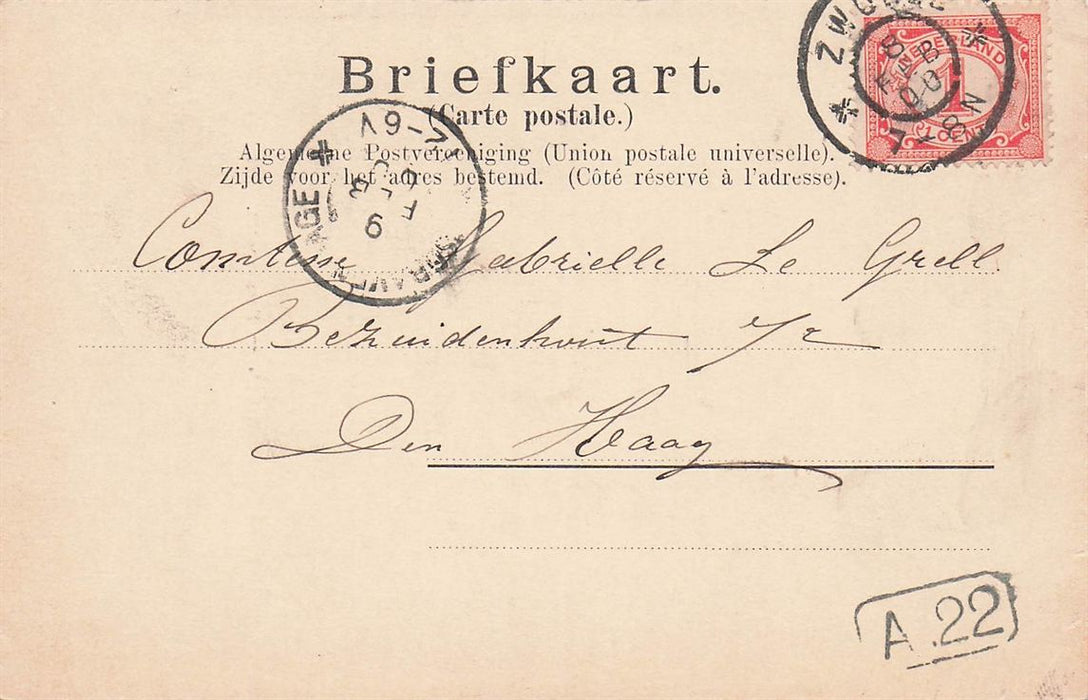 Briefkaart.
(Carte postale.)
Algemeene Postvereeniging (Union postale universelle).
Zijde voor het adres bestemd. (Côté réservé à l'adresse).
ZWOLLE
8 FEB 00
7-8N
NEDERLAND
1
1 CENT
6V-7V
9 FEB
'S GRAVENHAGE
Comtesse Gabrielle Le Grelle
Bezuidenhout
Den Haag
A.22